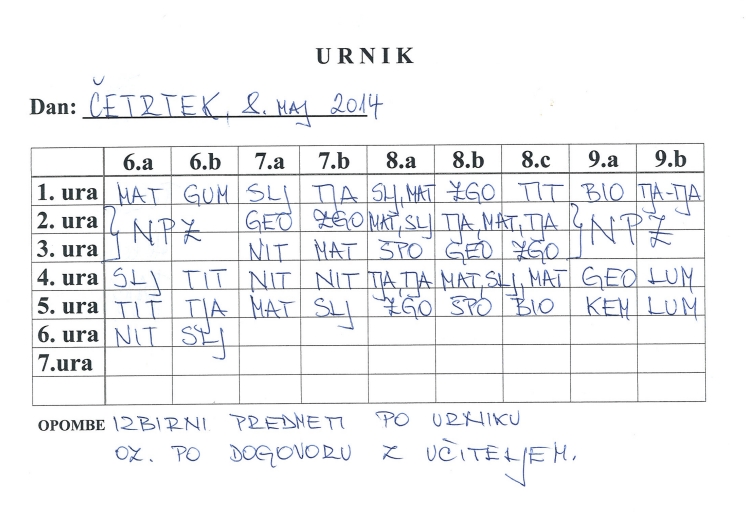 URNIK
Dan: ČETRTEK, 8. MAJ 2014
6.a 6.b 7.a 7.b 8.a 8.b 8.c 9.a 9.b
1. ura MAT GUM SLJ TJA SLJ,MAT ZGO TIT BIO TJA-TJA
2. ura } NPZ GEO ZGO MAT,SLJ TJA,MAT,TJA } NPZ
3. ura NIT MAT ŠPO GEO ZGO
4. ura SLJ TIT NIT NIT TJA,TJA MAT,SLJ,MAT GEO LUM
5. ura TIT TJA MAT SLJ ZGO ŠPO BIO KEM LUM
6. ura NIT SLJ
7.ura
OPOMBE IZBIRNI PREDMETI PO URNIKU
OZ. PO DOGOVORU Z UČITELJEM.